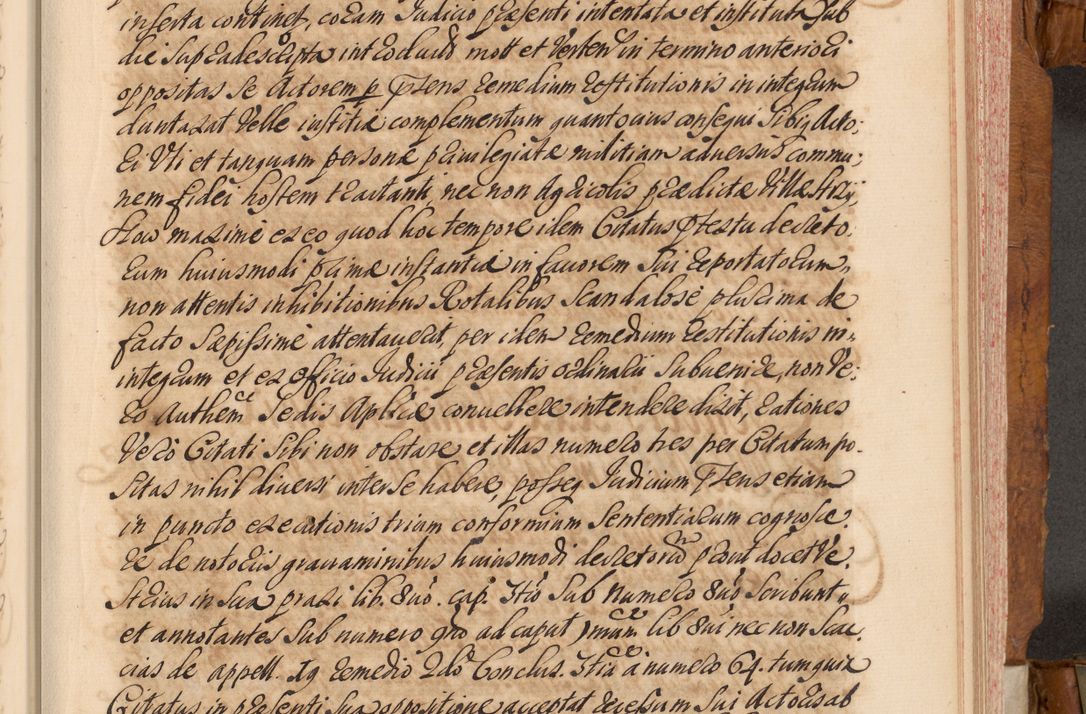 inserta continet, coram Judicio præsenti intentata et institut Sub
die Supradescripta introduxit mott et Verten in termino anteriori
oppositas Se Actorem p Pns remedium restitutionis in integrum
duntaxat Velle iustitiæ complementum quantocius consequi Sibiq Acto-
ri Vti et tanquam personæ priuilegiatæ militiam aduersus commu-
nem fidei hostem tractanti, nec non Agricolis prædictæ Villæ
maxime ex eo quod hoc tempore idem Citatus Ptestu decreto-
rum huiusmodi primæ instantiæ in fauorem Sui reportatorum,
non attentis inhibitionibus Rotalibus Scandalose plurima de
facto Sæpissime attentauerit, per idem remedium restitutionis in
integrum et ex officio Judicii præsentis ordinario Subuenire, non Ve-
ro Authem Sedis Aplicæ conuellere intendere dixit, rationes
Vero Citati Sibi non obstare et illas numero tres per Citatum po-
sitas nihil diuersi inter Se habere, posseq Judicium Pns etiam
in puncto executionis trium conformium Sententiarum cognosce-
re de notoriis grauaminibus huiusmodi decretorum prout docet Ve-
strius in Sua praxi lib. 8uo. cap. Sub Numero 8uo Scribunt,
et annotantes Sub numero gno ad caput lib 8ui nec non Scac-
cius de appell. remedio 2do Conclus. a numero 64. tum quia
Citatus in præsenti Sua oppositione acceptat recessum Sui Actoris ab